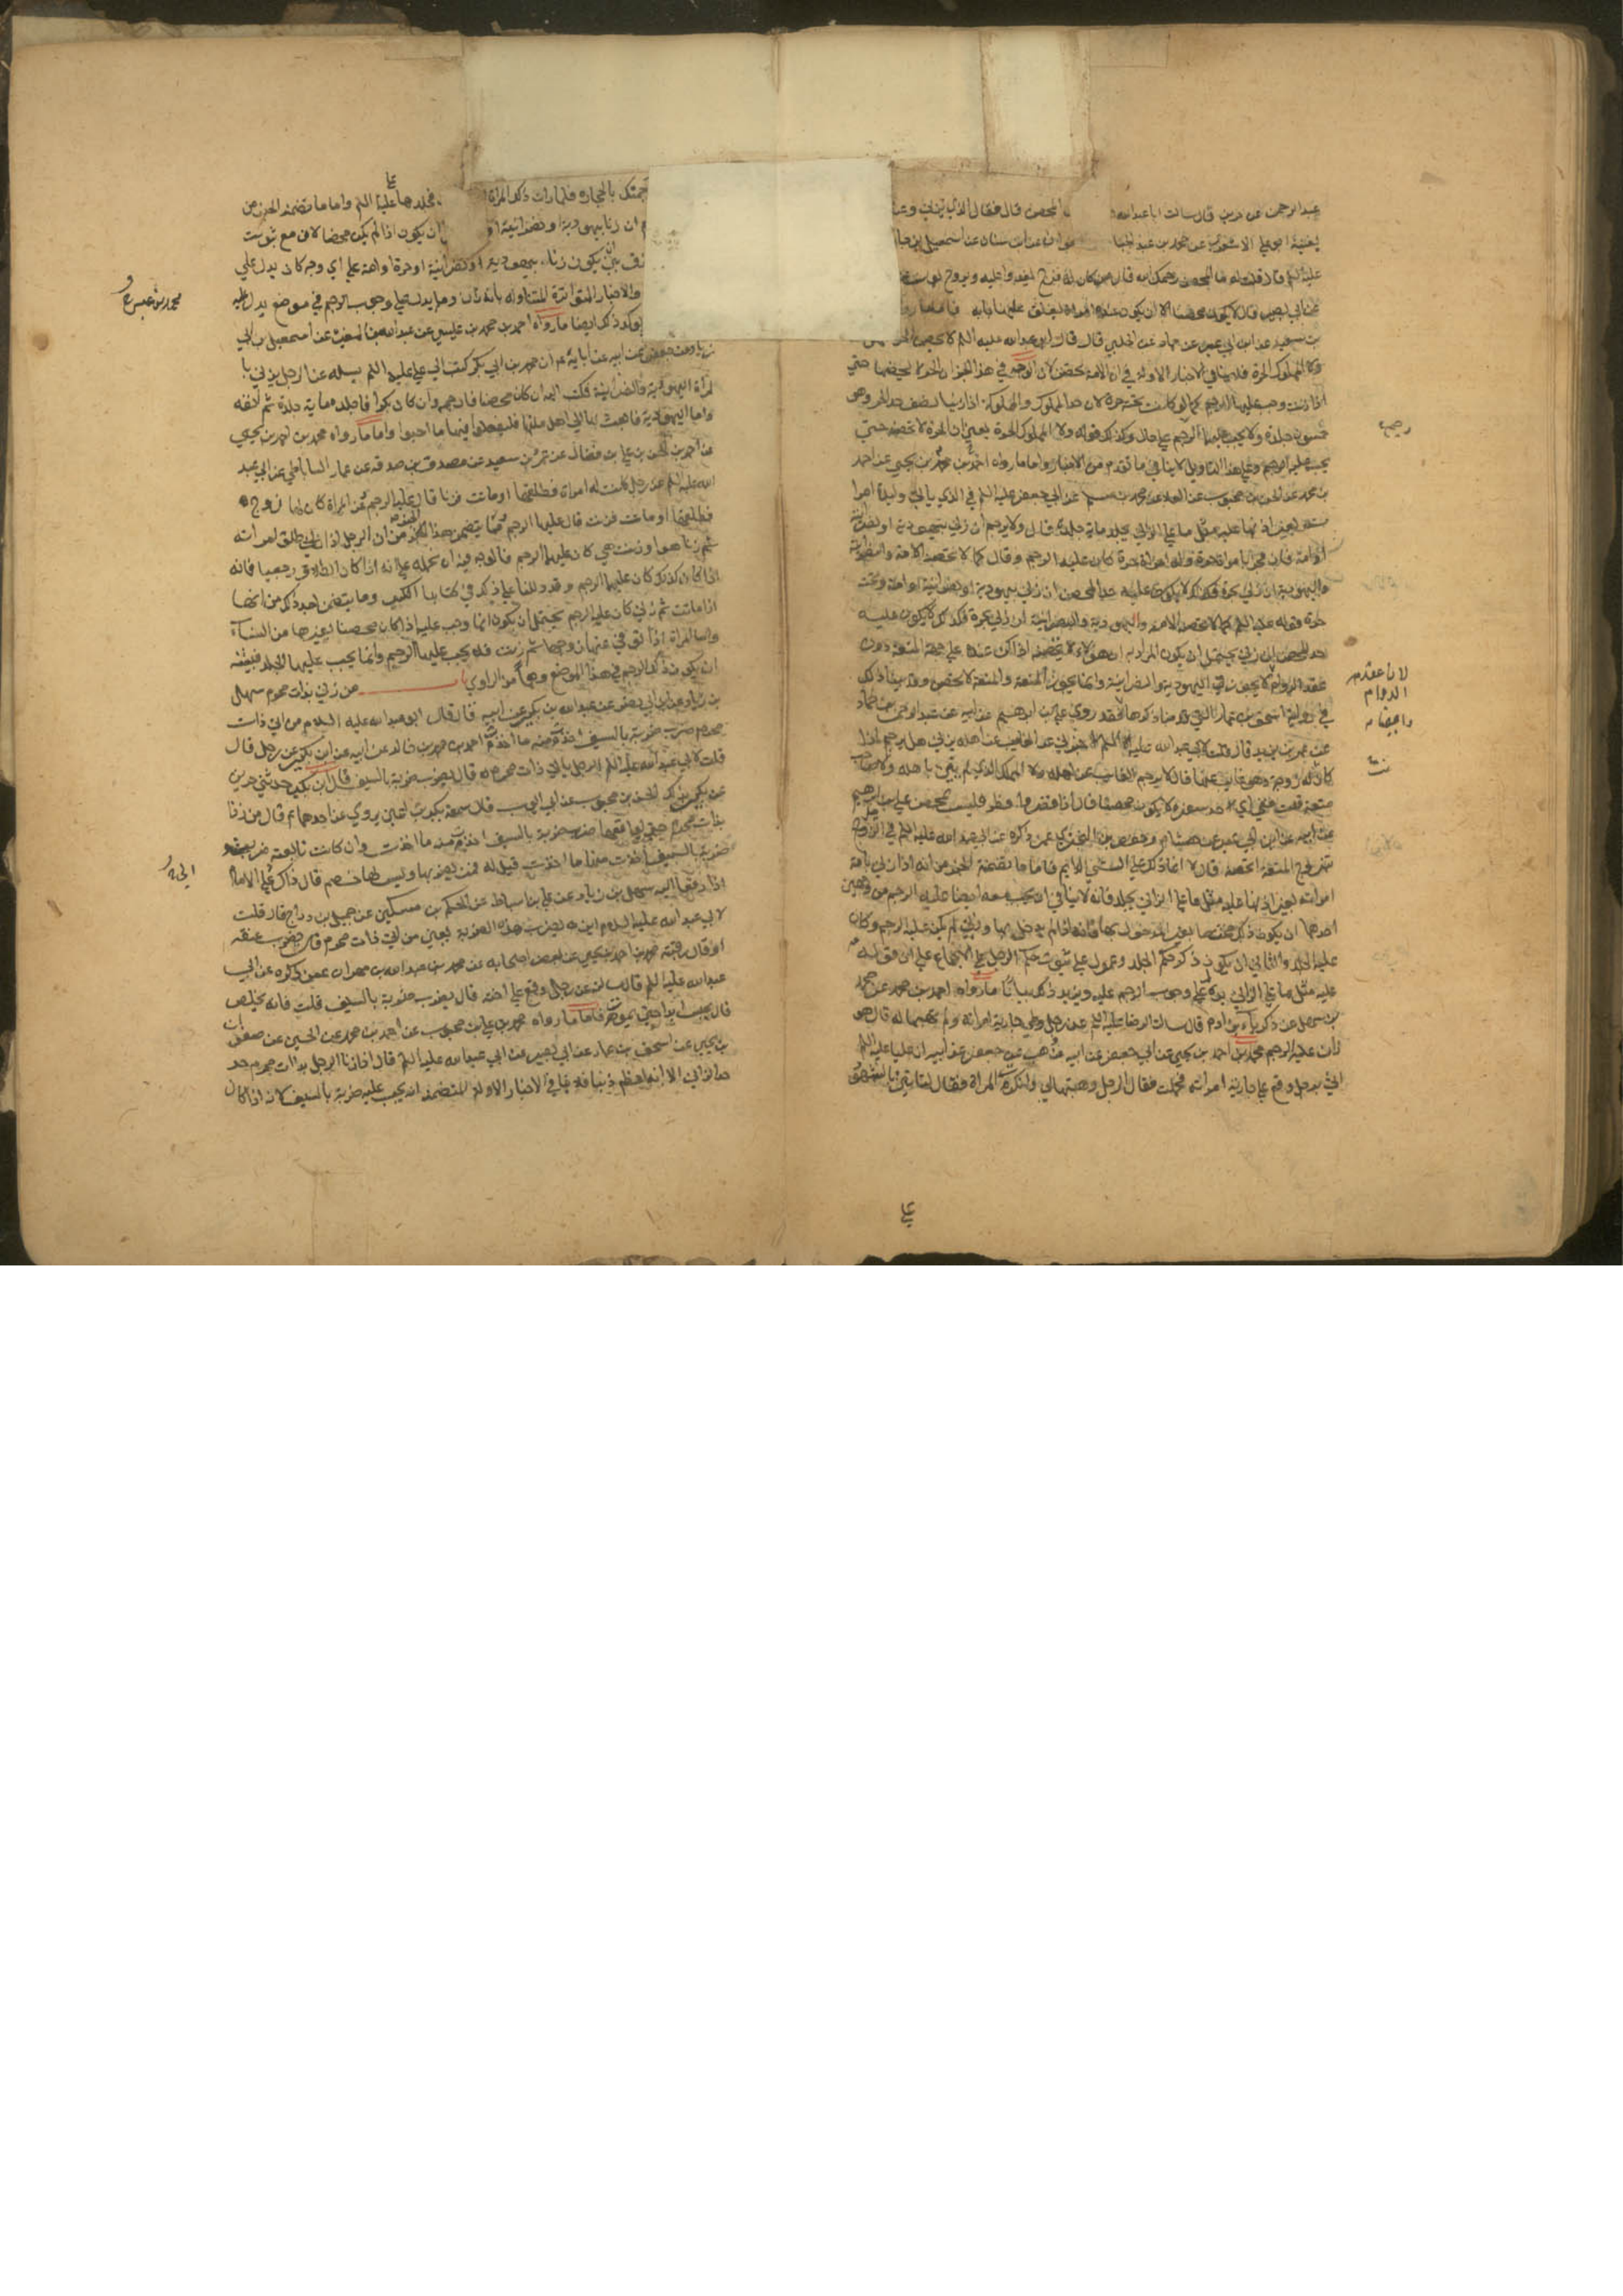 عبد الرحمن عن حريز قال سالت ابا عبد الله المحصن قال فقال الذي يزني وعنده
يغنيه ابو علي الاشعري عن محمد بن عبد الجبار صفوان عن ابن سنان عن اسمعيل بن جابر
عليه السلم قال قلت له ما المحصن رحمك الله قال من كان له فرج يغدو عليه ويروح
عن ابي بصير قال لا يكون محصنا الا ان يكون عنده امراة يغلق عليها بابه فاما ما رواه
بن سعيد عن ابن ابي عمير عن حماد عن الحلبي قال قال ابو عبد الله عليه السلم لا يحصن الحر
ولا المملوك الحرة فلا ينافي الاخبار الاولة في ان الامة تحصن لان الوجه في هذا الخبر ان الحر لا يحصنها حتي
اذا زنت وجب عليها الرجم كما لو كانت تحته حرة لان حد المملوك والمملوكة اذا زنيا نصف حد الحر وهو
خمسون جلدة ولا يجب عليهما الرجم علي حال وكذلك قوله ولا المملوك الحرة يعني ان الحرة لا تحصنه حتي
يجب عليه الرجم وعلي هذا التاويل لا ينافي ما تقدم من الاخبار واما ما رواه احمد بن محمد بن يحيي عن احمد
بن محمد عن الحسن بن محبوب عن العلا عن محمد بن مسلم عن ابي جعفر عليه السلم في الذي ياتي وليدة امرا
بغير اذنها عليه مثل ما علي الزاني يجلد ماية جلدة قال ولا يرجم ان زني بيهودية او نصرانية
او امة فان فجر بامراة حرة وله امراة حرة كان عليه الرجم وقال كما لا تحصنه الامة والنصرانية
واليهودية ان زني بحرة فكذلك لا يكون عليه حد المحصن ان زني بيهودية او نصرانية او امة وتحته
حرة فقوله عليه السلم كما لا تحصنه الامة واليهودية والنصرانية ان زني بحرة فكذلك لا يكون عليه
حد المحصن ان زني يحتمل ان يكون المراد به ان هؤلاء لا يحصنه اذا كن عنده علي جهة المتعة دون
عقد الدوام لا يجوز في اليهودية والنصرانية وانما يجوز المتعة والمتعة لا تحصن وقد بينا ذلك
في رواية اسحق بن عمار التي قدمنا ذكرها فقد روي علي بن ابرهيم عن ابيه عن عبد الرحمن بن حماد
عن عمر بن يزيد قال قلت لابي عبد الله عليه السلم اخبرني عن الغايب عن اهله يزني هل يرجم اذا
كان له زوجة وهو غايب عنها قال لا يرجم الغايب عن اهله ولا المملك الذي لم يبن باهله ولا صاحب
متعة قلت ففي اي حد سفره لا يكون محصنا قال اذا قصر وافطر فليس بمحصن علي بن ابرهيم
عن ابيه عن ابن ابي عمير عن هشام وحفص بن البختري عمن ذكره عن ابي عبد الله عليه السلم في الرجل
تزوج المتعة اتحصنه قال لا انما ذاك علي الشئ الدايم فاما ما تضمنه الخبر من انه اذا زني بامة
امراته بغير اذنها عليه مثل ما علي الزاني يجلد فانه لا ينافي ان يجب معه ايضا عليه الرجم من وجهين
احدهما ان يكون ذلك مختصا بغير المدخول بها فانه اذا لم يدخل بها وزني لم يكن عليه الرجم وكان
عليه الجلد والثاني ان يكون ذكر حكم الجلد وعول علي ثبوت حكم الرجم علي الاجماع علي ان قوله
عليه مثل ما علي الزاني يدل علي وجوب الرجم عليه ويزيد ذلك بيانا ما رواه احمد بن محمد عن محمد
بن سهل عن ذكريا بن ادم قال سالت الرضا عليه السلم عن رجل وطي جارية امراته ولم تهبها له قال هو
زان عليه الرجم محمد بن احمد بن يحيي عن ابي جعفر عن ابيه عن وهب عن جعفر عن ابيه ان عليا عليه السلم
اتي برجل وقع علي جارية امراته فحملت فقال الرجل وهبتها لي وانكرت المراة فقال لتاتيني بالشهود
رجمه
لان عقد
الدوام
علي
جمتك بالحجارة فلما رات ذلك المراة فجلدها علي عليه السلم واما ما تضمنه الخبر من
ان زنا بيهودية او نصرانية ان يكون اذا لم يكن محصنا لان مع ثبوت
فرق بين يكون زناء بيهودية او نصرانية او حرة او امة علي اي وجه كان يدل علي
والاخبار المتواترة المتناولة بانه زان وما يدل علي وجوب الرجم في موضع يدل عليه
يوكد ذلك ايضا ما رواه احمد بن محمد بن عيسي عن عبد الله بن المغيرة عن اسمعيل بن ابي
زياد عن جعفر عن ابيه عن ابايه ان محمد بن ابي بكر كتب الي علي عليه السلم يسله عن الرجل يزني با
لمراة اليهودية والنصرانية فكتب اليه ان كان محصنا فارجمه وان كان بكرا فاجلده ماية جلدة ثم انفه
واما اليهودية فابعث بها الي اهل ملتها فليقضوا فيها ما احبوا واما ما رواه محمد بن احمد بن يحيي
عن احمد بن الحسن بن علي بن فضال عن عمرو بن سعيد عن مصدق بن صدقه عن عمار الساباطي عن ابي عبد
الله عليه السلم عن رجل كانت له امراة فطلقها او ماتت فزنا قال عليه الرجم عن امراة كان لها زوج
فطلقها او مات فزنت قال عليها الرجم فما يتضمن هذا الخبر من ان الرجل اذا طلق امراته
ثم زنا هو او زنت هي كان عليهما الرجم فالوجه فيه ان نحمله علي انه اذا كان الطلاق رجعيا فانه
اذا كان كذلك كان عليهما الرجم وقد دللنا علي ذلك في كتابنا الكبير وما يتضمن بعد ذلك من انها
اذا ماتت ثم زني كان عليه الرجم يحتمل ان يكون انما وجب عليه اذا كان محصنا بغيرها من النساء
واما المراة اذا توفي عنها زوجها ثم زنت فلا يجب عليها الرجم وانما يجب عليها الجلد فيشبه
ان يكون ذكر الرجم في هذا الموضع وهما من الراوي باب من زني بذات محرم سهل
بن زياد عن ابن ابي نصر عن عبد الله بن بكير عن ابيه قال قال ابو عبد الله عليه السلام من اتي ذات
محرم ضرب ضربة بالسيف اخذت منه ما اخذت احمد بن محمد بن خالد عن ابيه عن ابن بكير عن رجل قال
قلت لابي عبد الله عليه السلم الرجل ياتي ذات محرم له قال يضرب ضربة بالسيف قال ابن بكير حدثني حريز
عن بكير بذلك الحسن بن محبوب عن ابي ايوب قال سمعت بكير بن اعين يروي عن احدهما ع قال من زنا
بذات محرم حتي يواقعها ضرب ضربة بالسيف اخذت منه ما اخذت وان كانت تابعته ضربت
ضربة بالسيف اخذت منها ما اخذت قيل له فمن يضربهما وليس لها خصم قال ذاك علي الامام
اذا رفعا اليه سهل بن زياد عن علي بن اسباط عن الحكم بن مسكين عن جميل بن دراج قال قلت
لابي عبد الله عليه السلام اين يضرب هذه الضربة يعني من اتي ذات محرم قال يضرب عنقه
او قال رقبته محمد بن احمد بن يحيي عن بعض اصحابه عن محمد بن عبد الله بن مهران عمن ذكره عن ابي
عبد الله عليه السلم قال سالته عن رجل وقع علي اخته قال يضرب ضربة بالسيف قلت فانه يخلص
قال يحبس ابدا حتي يموت فاما ما رواه محمد بن علي بن محبوب عن احمد بن محمد عن الحسين عن صفوان
بن يحيي عن اسحق بن عمار عن ابي بصير عن ابي عبد الله عليه السلم قال اذا زنا الرجل بذات محرم حد
حد الزاني الا انه اعظم ذنبا فلا ينافي الاخبار الاولة المتضمنة انه يجب عليه ضربة بالسيف لانه اذا كان
محمد بن عيسي